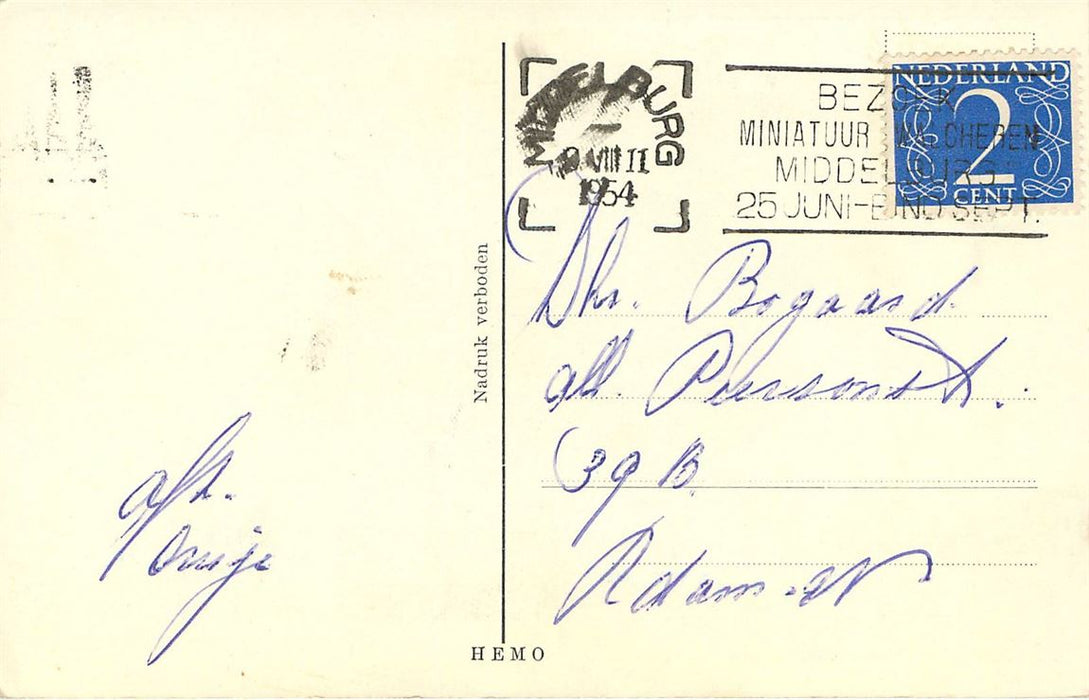 MIDDELBURG
VIII 11
1954
BEZOEK
MINIATUUR WALCHEREN
MIDDELBURG
25 JUNI-EIND SEPT.
NEDERLAND
2
CENT
Nadruk verboden
Dhr. Bogaard
alb. Piersonst.
39 B.
Adam-W
afz.
HEMO